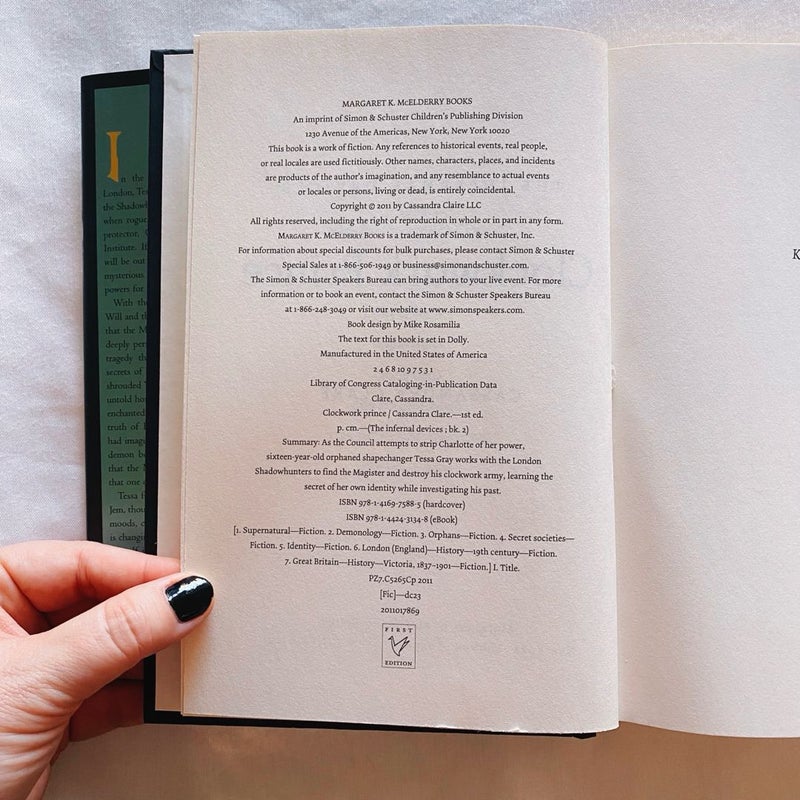 I
n the
London, Tes
the Shadowh
when rogue
protector,
Institute. If
will be out
mysterious
powers for
With the
Will and th
that the M
deeply pers
tragedy th
secrets of
shrouded
untold hor
enchanted
truth of
had imagi
demon be
that the
that one
Tessa f
Jem, thou
moods, c
is chang
MARGARET K. McELDERRY BOOKS
An imprint of Simon & Schuster Children's Publishing Division
1230 Avenue of the Americas, New York, New York 10020
This book is a work of fiction. Any references to historical events, real people,
or real locales are used fictitiously. Other names, characters, places, and incidents
are products of the author's imagination, and any resemblance to actual events
or locales or persons, living or dead, is entirely coincidental.
Copyright © 2011 by Cassandra Claire LLC
All rights reserved, including the right of reproduction in whole or in part in any form.
MARGARET K. McELDERRY BOOKS is a trademark of Simon & Schuster, Inc.
For information about special discounts for bulk purchases, please contact Simon & Schuster
Special Sales at 1-866-506-1949 or business@simonandschuster.com.
The Simon & Schuster Speakers Bureau can bring authors to your live event. For more
information or to book an event, contact the Simon & Schuster Speakers Bureau
at 1-866-248-3049 or visit our website at www.simonspeakers.com.
Book design by Mike Rosamilia
The text for this book is set in Dolly.
Manufactured in the United States of America
2 4 6 8 10 9 7 5 3 1
Library of Congress Cataloging-in-Publication Data
Clare, Cassandra.
Clockwork prince / Cassandra Clare.—1st ed.
p. cm.—(The infernal devices ; bk. 2)
Summary: As the Council attempts to strip Charlotte of her power,
sixteen-year-old orphaned shapechanger Tessa Gray works with the London
Shadowhunters to find the Magister and destroy his clockwork army, learning the
secret of her own identity while investigating his past.
ISBN 978-1-4169-7588-5 (hardcover)
ISBN 978-1-4424-3134-8 (eBook)
[1. Supernatural—Fiction. 2. Demonology—Fiction. 3. Orphans—Fiction. 4. Secret societies—
Fiction. 5. Identity—Fiction. 6. London (England)—History—19th century—Fiction.
7. Great Britain—History—Victoria, 1837-1901—Fiction.] I. Title.
PZ7.C5265Cp 2011
[Fic]—dc23
2011017869
FIRST
EDITION
K